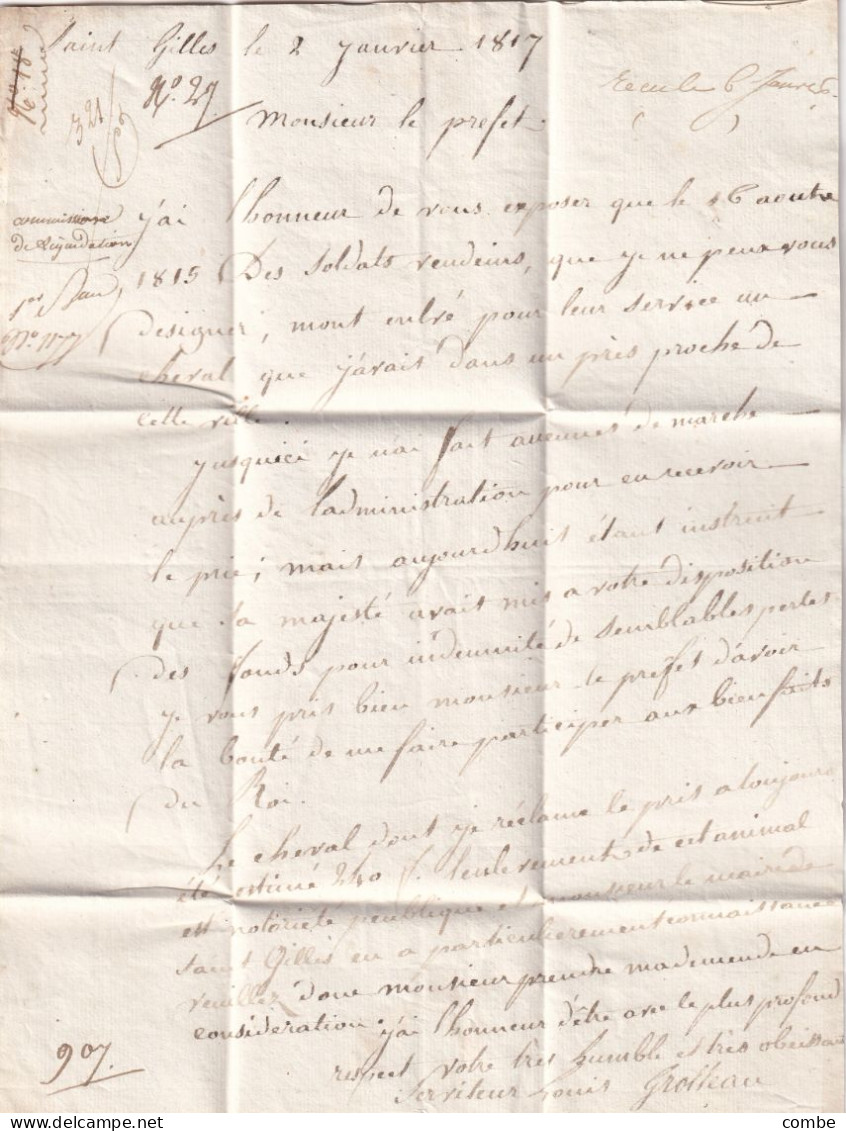 Saint Gilles le 2 Janvier 1817
No. 27
321
Monsieur le prefet.
commission
de Liquidation
No. 1177
j'ai l'honneur de vous exposer que le 16 aoute
1815 Des soldats vendeins, que je ne peux vous
designer, mont enlvé pour leur service un
cheval que j'avait dans un près proche de
cette ville.
jusquici je n'ai fait aucunes de marche
auprès de l'administration pour en recevoir
le prix; mais aujourdhuit étant instruit
que sa majesté avait mis a votre disposition
des fonds pour indemnité de semblables pertes
je vous pris bien monsieur le préfet d'avoir
la bonté de me faire participer aux bien faits
du Roi.
Le cheval dont je réclame le pris a toujours
été estimé 240 f. lenlevement de cet animal
est notorieté peublique et monsieur le maire de
saint Gilles en a particulierement connaissance
veuillez donc monsieur prendre ma demende en
considération j'ai l'honneur d'être avec le plus profond
respect votre très humble et très obeissant
Serviteur Louis Grolleau
907.
combe